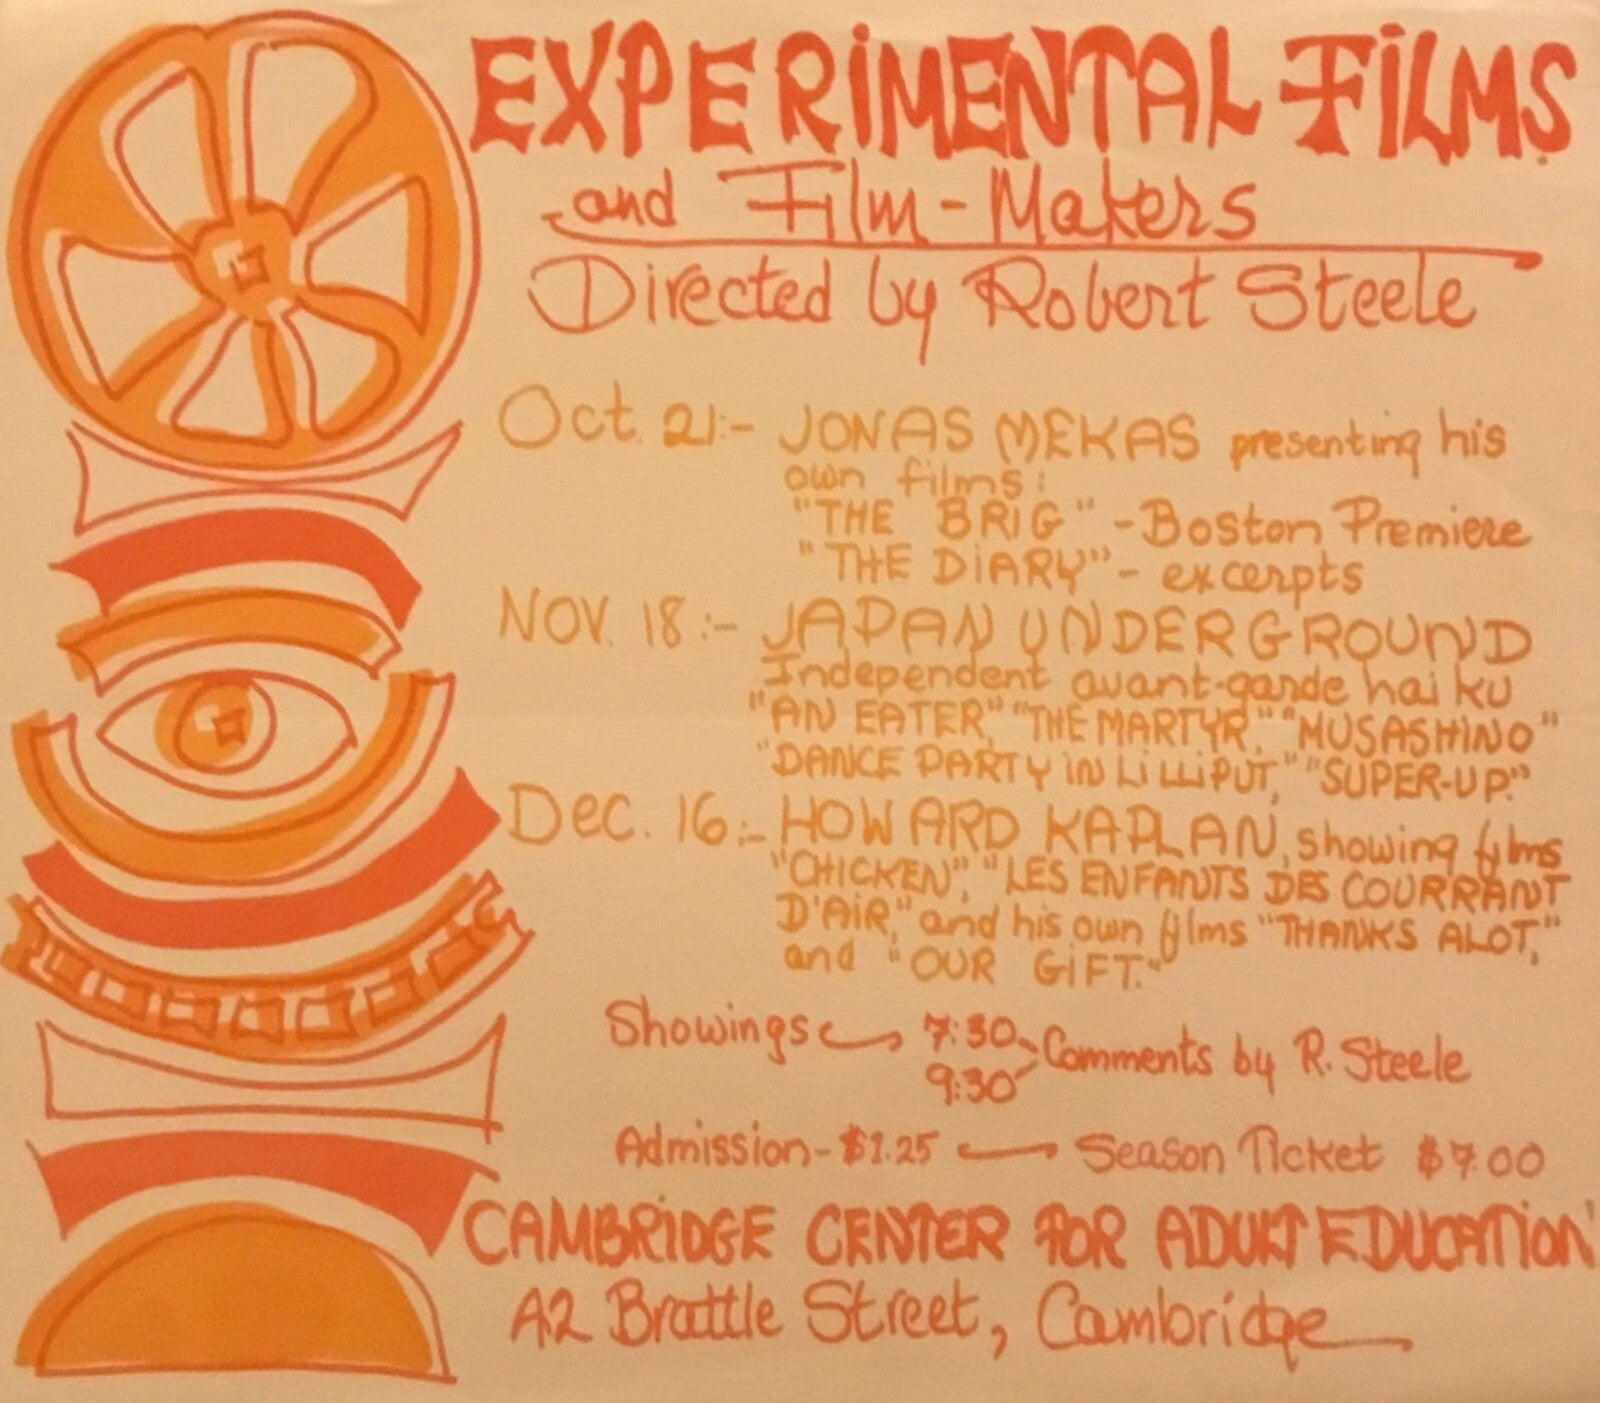 EXPERIMENTAL FILMS
and Film-Makers
Directed by Robert Steele
Oct. 21:- JONAS MEKAS presenting his
own films:
"THE BRIG" - Boston Premiere
"THE DIARY" - excerpts
NOV. 18:- JAPAN UNDERGROUND
Independent avant-garde haiku
"AN EATER," "THE MARTYR," "MUSASHINO"
"DANCE PARTY IN LILLIPUT," "SUPER-UP."
Dec. 16:- HOWARD KAPLAN, showing films
"CHICKEN", "LES ENFANTS DES COURRANT
D'AIR," and his own films "THANKS ALOT,"
and "OUR GIFT."
Showings 7:30 Comments by R. Steele
9:30
Admission - $1.25 Season Ticket $7.00
CAMBRIDGE CENTER FOR ADULT EDUCATION
42 Brattle Street, Cambridge